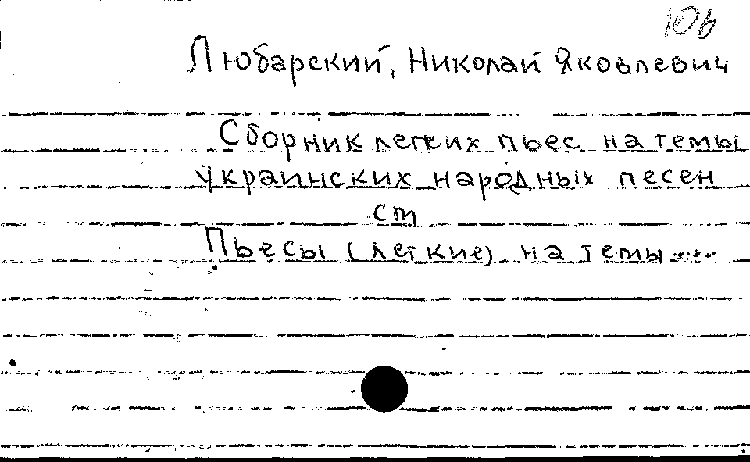 Юв
Любарский, Николай Яковлевич
Сборник легких пьес на темы
украинских народных песен
см
Пьесы (легкие) на темы....